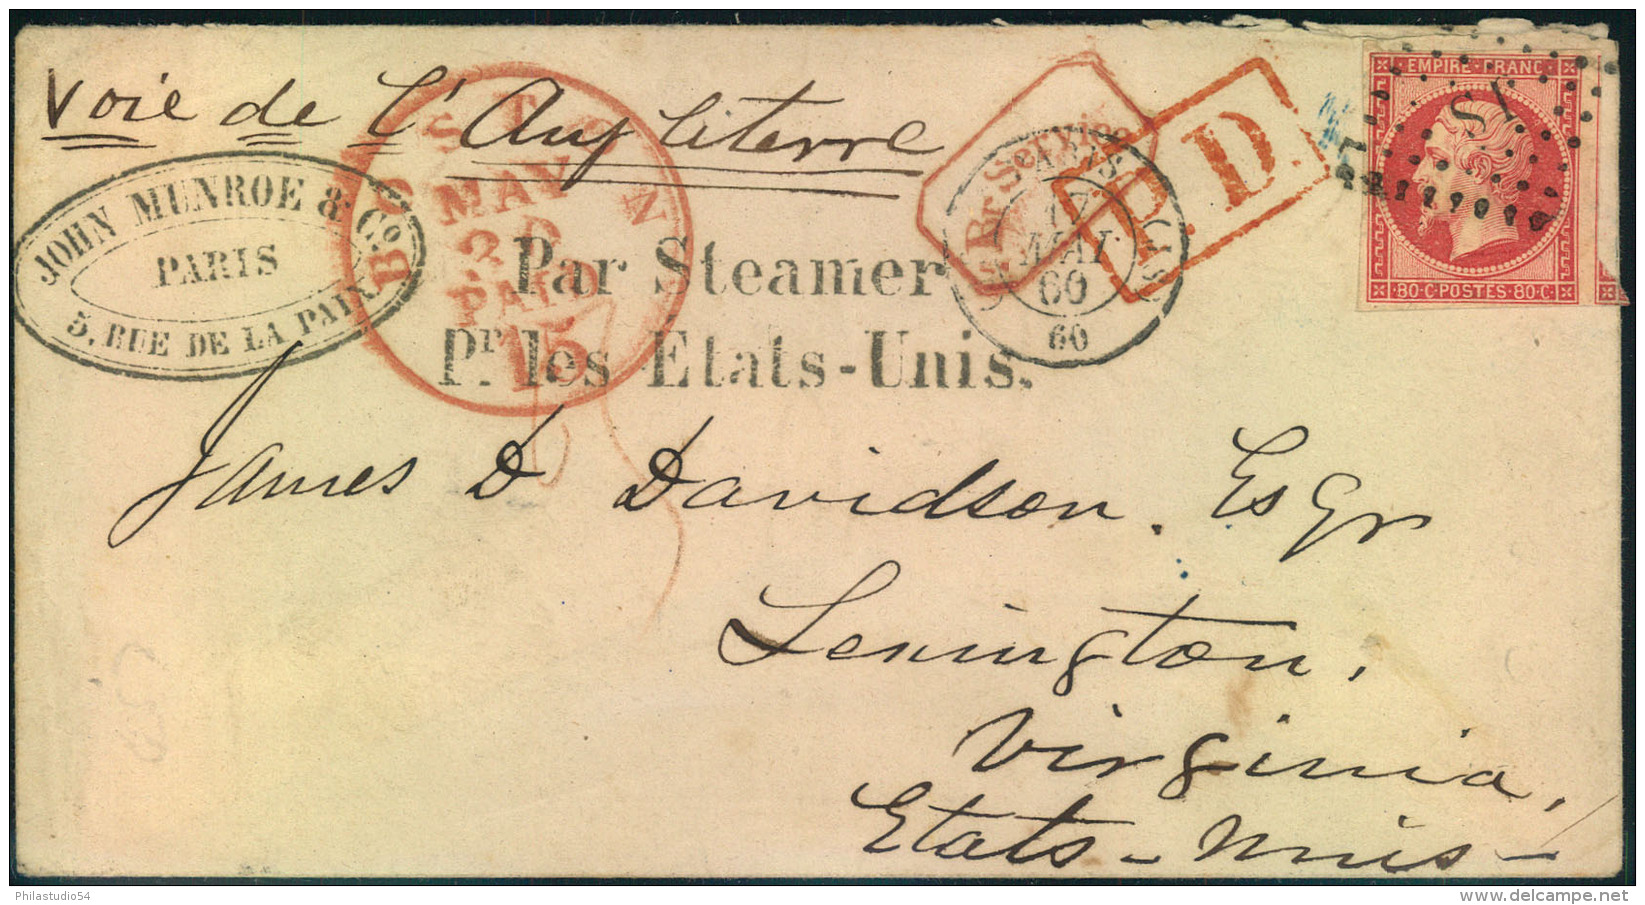 Voie de l'Angleterre
JOHN MUNROE & Co.
PARIS
5, RUE DE LA PAIX
BOSTON
MAY
PAID
15
Par Steamer
Pr. les Etats-Unis.
Br Service
PARIS
17
MAI
60
60
P.D.
EMPIRE FRANC
80·C·POSTES·80·C·
James D Davidson. Esqr
Lexington,
Virginia,
Etats-Unis-
Philastudio54
delcampe.net